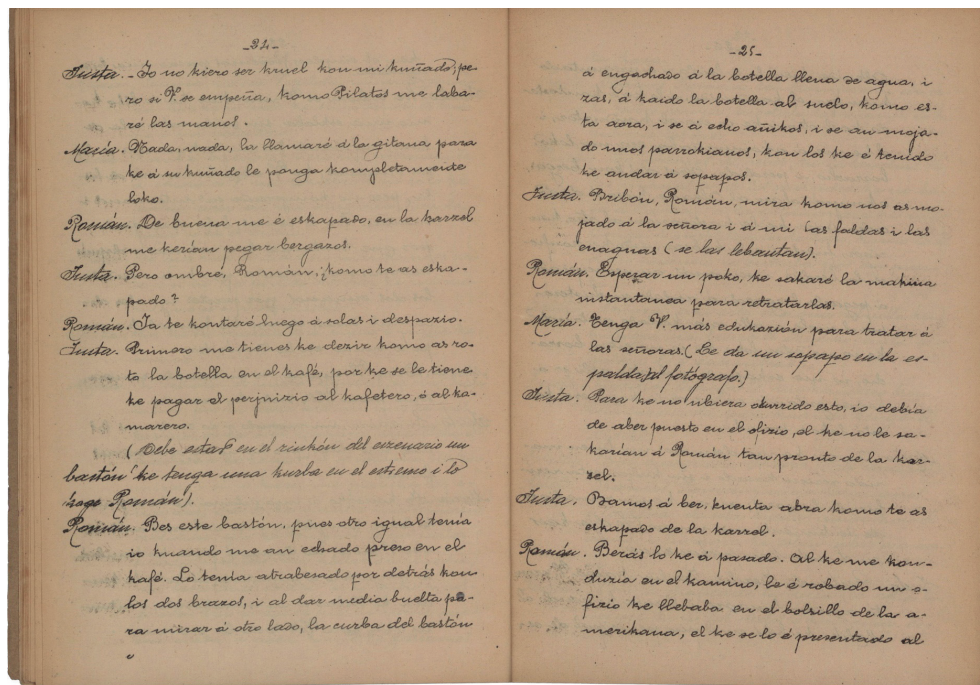 -24-
Justa. - Io no kiero ser kruel kon mi kuñado; pe-
ro si V. se empeña, komo Pilatos me laba-
ré las manos.
María. Nada, nada, la llamaré á la gitana para
ke á su kuñado le ponga kompletamente
loko.
Román. De buena me é eskapado, en la karzel
me kerían pegar bergazos.
Justa. Pero ombre, Román, ¿komo te as eska-
pado?
Román. Ia te kontaré luego á solas i despazio.
Justa. Primero me tienes ke dezir komo as ro-
to la botella en el kafé, por ke se le tiene
ke pagar el perjuizio al kafetero, ó al ka-
marero.
(Debe estar en el rinkón del eszenario un
bastón ke tenga una kurba en el estremo i lo
koge Román).
Román. Bes este bastón, pues otro igual tenía
io kuando me an echado preso en el
kafé. Lo tenía atrabesado por detrás kon
los dos brazos, i al dar media buelta pa-
ra mirar á otro lado, la curba del bastón
-25-
á enganchado á la botella llena de agua, i
zas, á kaido la botella al suelo, komo es-
ta aora, i se á echo añikos, i se an moja-
do unos parrokianos, kon los ke é tenido
ke andar á sopapos.
Justa. Bribón, Román, mira komo nos as mo-
jado á la señora i á mi las faldas i las
enaguas (se las lebantan).
Román. Esperar un poko, ke sakaré la makina
instantanea para retratarlas.
María. Tenga V. más edukazión para tratar á
las señoras. (Le da un sopapo en la es-
palda, al fotógrafo.)
Justa. Para ke no ubiera okurrido esto, io debía
de aber puesto en el ofizio, el ke no le sa-
karían á Román tan pronto de la kar-
zel.
Justa. Bamos á ber, kuenta aora komo te as
eskapado de la karzel.
Román. Berás lo ke á pasado. Al ke me kon-
duzía en el kamino, le é robado un o-
fizio ke llebaba en el bolsillo de la a-
merikana, el ke se lo é presentado al